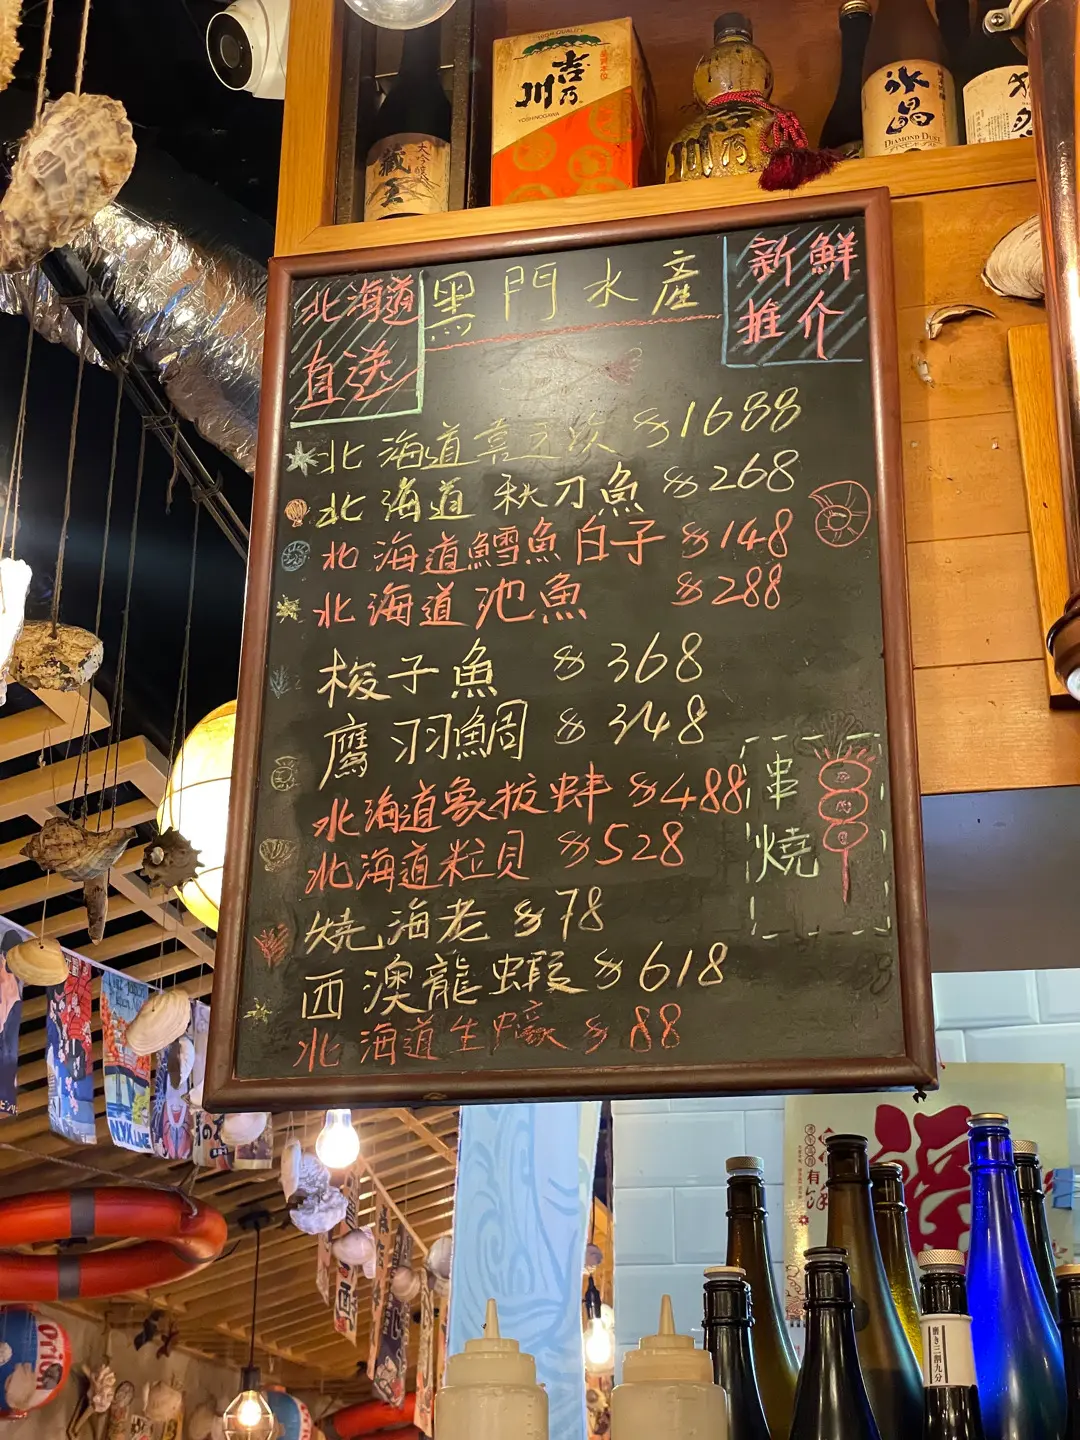 HIGH QUALITY
吉乃川
YOSHINOGAWA
大吟醸
藏王
吉乃川
氷晶
DIAMOND DUST
北海道
直送
黑門水產
新鮮
推介
北海道喜之次 $1688
北海道秋刀魚 $268
北海道鱈魚白子 $148
北海道池魚 $288
梭子魚 $368
鷹羽鯛 $348
北海道象拔蚌 $488
北海道粒貝 $528
燒海老 $78
西澳龍蝦 $618
北海道生蠔 $88
串
燒
酒
有
磨き三割九分